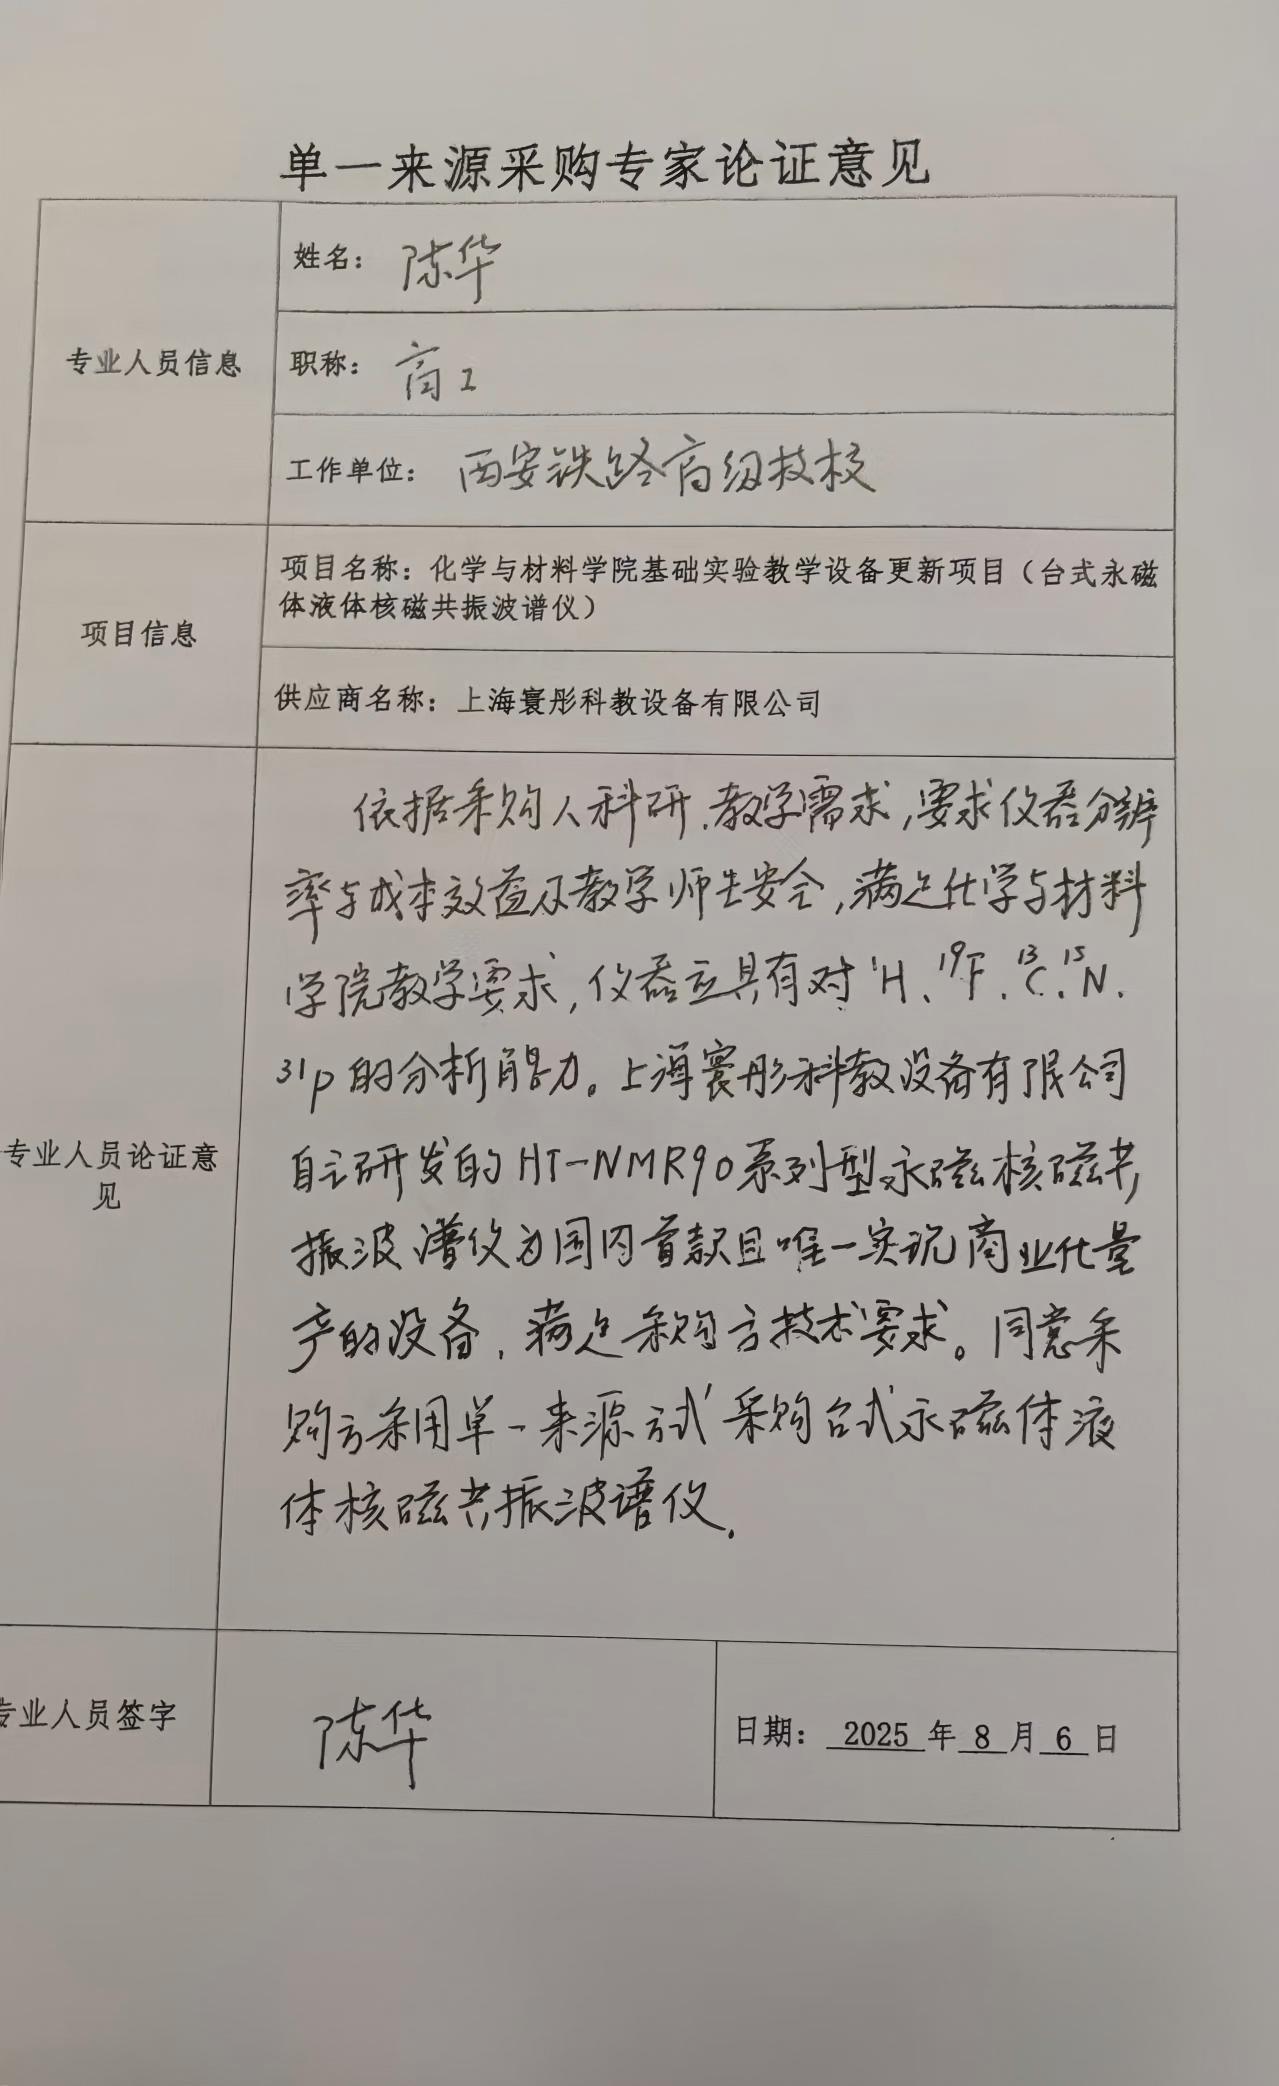 单一来源采购专家论证意见
专业人员信息
姓名：陈华
职称：高工
工作单位：西安铁路高级技校
项目信息
项目名称：化学与材料学院基础实验教学设备更新项目（台式永磁
体液体核磁共振波谱仪）
供应商名称：上海寰彤科教设备有限公司
专业人员论证意
见
依据采购人科研、教学需求，要求仪器分辨
率与成本效益及教学师生安全，满足化学与材料
学院教学要求，仪器应具有对¹H、¹⁹F、¹³C、¹⁵N、
³¹P的分析能力。上海寰彤科教设备有限公司
自主研发的HT-NMR90系列型永磁核磁共
振波谱仪为国内首款且唯一实现商业化量
产的设备，满足采购方技术要求。同意采
购方采用单一来源方式采购台式永磁体液
体核磁共振波谱仪.
专业人员签字
陈华
日期：2025年8月6日